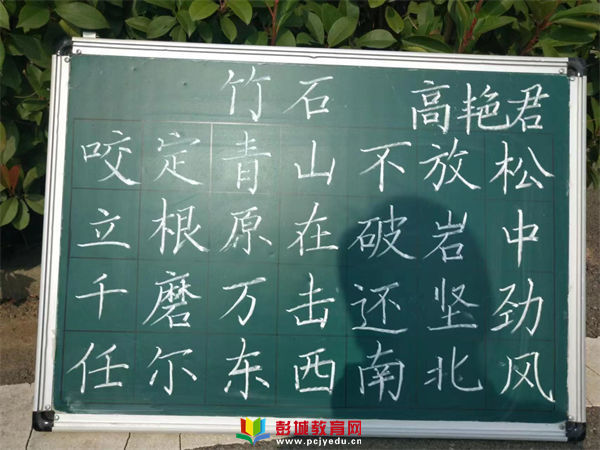 竹石 高艳君
咬定青山不放松
立根原在破岩中
千磨万击还坚劲
任尔东西南北风
彭城教育网
www.pcjyedu.cn